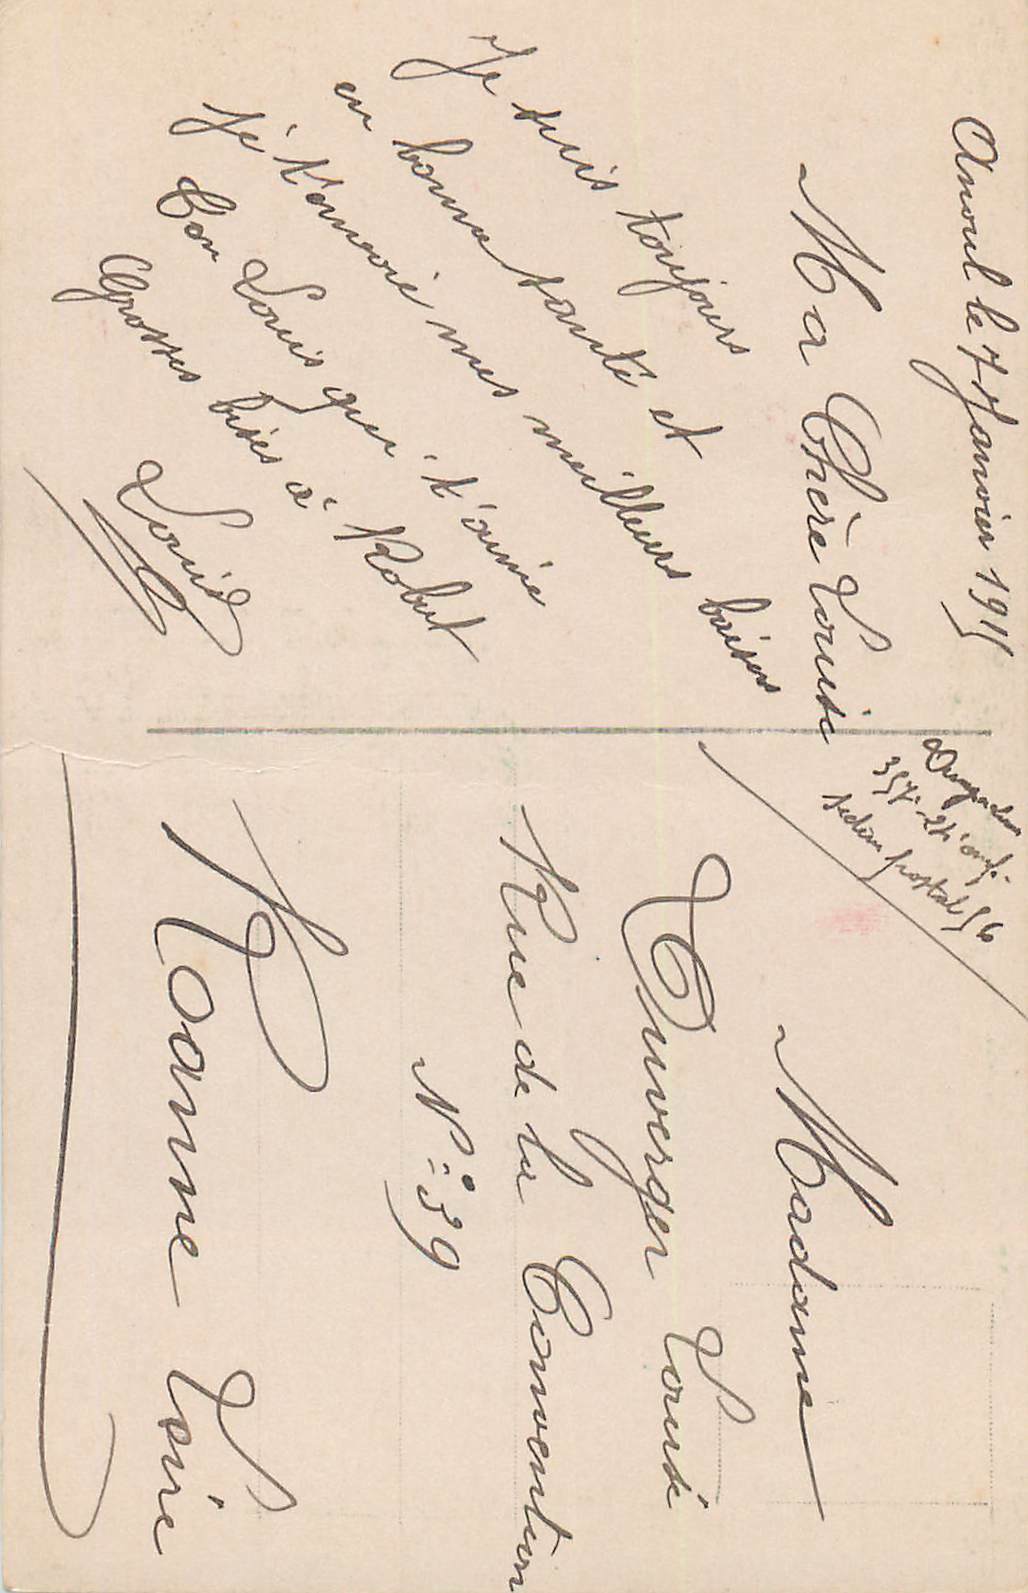 Anoul le 7 Janvier 1915
Ma Chère Louise
Je suis toujours
en bonne santé et
je t'envoie mes meilleurs baisers
Ton Louis qui t'aime
Grosses bises à Robert
Louis
27e
secteur postal 56
Madame
Duverger Louise
Rue de la Convention
N° 39
Roanne Loire